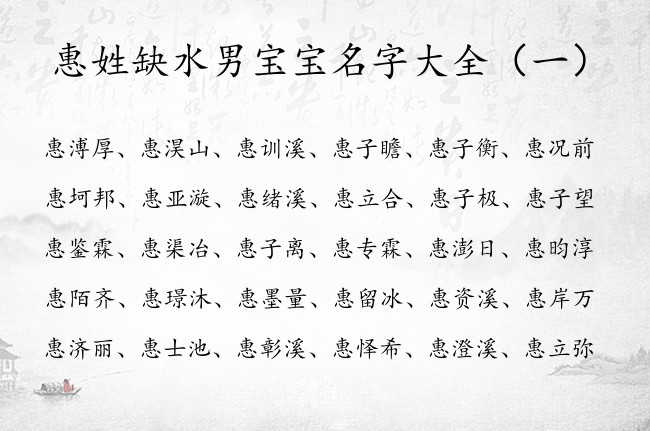 惠姓缺水男宝宝名字大全（一）
惠溥厚、惠淏山、惠训溪、惠子瞻、惠子衡、惠况前
惠坷邦、惠亚漩、惠绪溪、惠立合、惠子极、惠子望
惠鉴霖、惠渠冶、惠子离、惠专霖、惠澎日、惠昀淳
惠陌齐、惠璟沐、惠墨量、惠留冰、惠资溪、惠岸万
惠济丽、惠士池、惠彰溪、惠怿希、惠澄溪、惠立弥